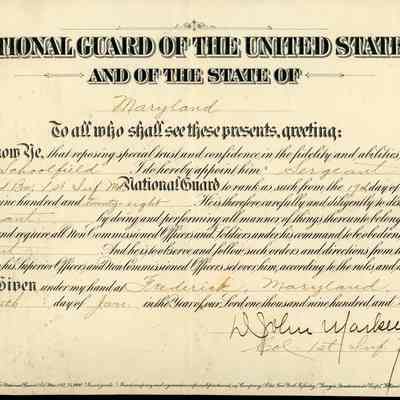 TIONAL GUARD OF THE UNITED STATE
AND OF THE STATE OF
Maryland
To all who shall see these presents, greeting:
now Ye, that reposing special trust and confidence in the fidelity and abilities
Schoolfield I do hereby appoint him Sergeant
1st Inf Md National Guard to rank as such from the day of
ne hundred and twenty-eight He is therefore carefully and diligently to dis
ant by doing and performing all manner of things thereunto belong
nd require all Non Commissioned Officers and Soldiers under his command to be obedien
And he is to observe and follow such orders and directions from t
his Superior Officers and Non Commissioned Officers set over him, according to the rules and
Given under my hand at Frederick, Maryland,
th day of Jan. in the Year of our Lord one thousand nine hundred and
D. John Markey
Col 1st Inf